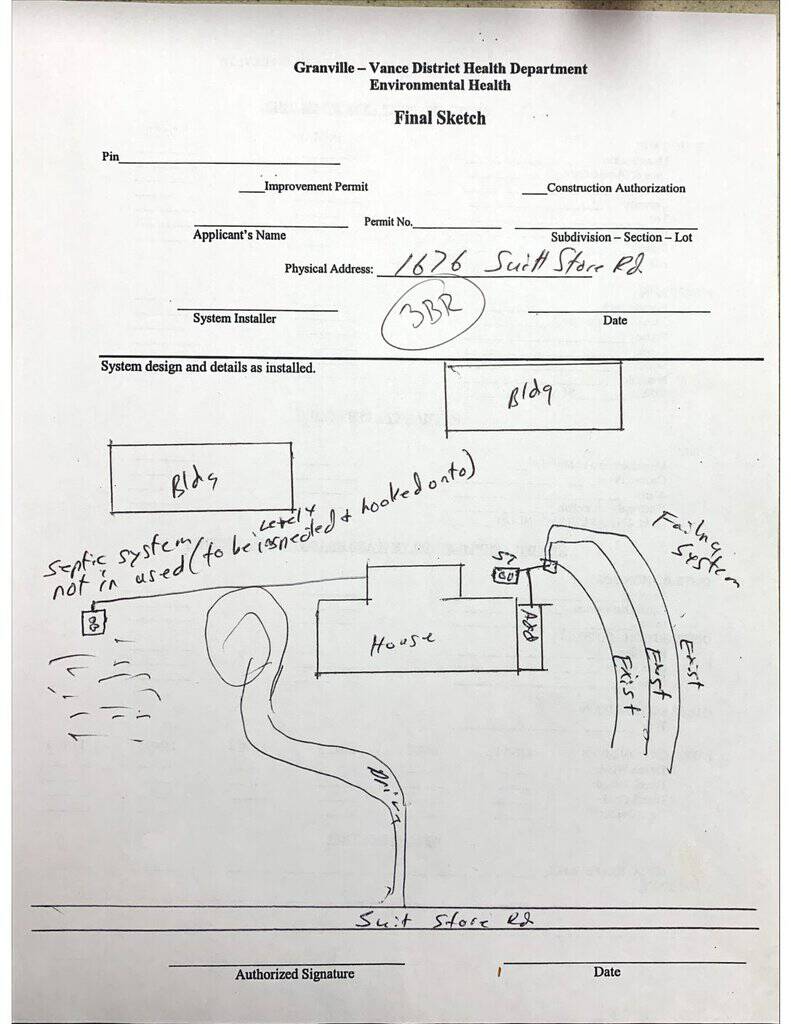 Granville – Vance District Health Department
Environmental Health
Final Sketch
Pin
Improvement Permit
Construction Authorization
Permit No.
Applicant's Name
Subdivision – Section – Lot
Physical Address: 1676 Suitt Store Rd
System Installer
3BR
Date
System design and details as installed.
Bldg
Bldg
Septic system
not in used (to be inspected & hooked onto)
Failing
System
ST
House
Add
Exist
Exist
Exist
Drive
Suit Store Rd
Authorized Signature
Date